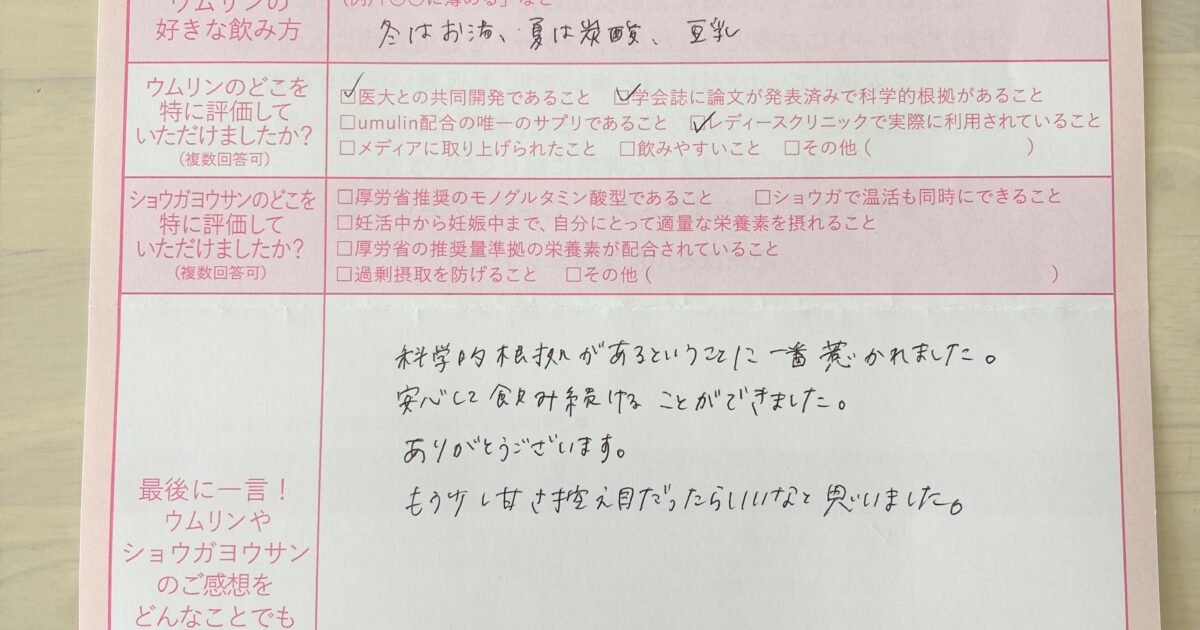 ウムリンの
好きな飲み方
に薄める」など
冬はお湯、夏は炭酸、豆乳
ウムリンのどこを
特に評価して
いただけましたか?
(複数回答可)
☑医大との共同開発であること ☑学会誌に論文が発表済みで科学的根拠があること
□umulin配合の唯一のサプリであること ☑レディースクリニックで実際に利用されていること
□メディアに取り上げられたこと □飲みやすいこと □その他 ( )
ショウガヨウサンのどこを
特に評価して
いただけましたか?
(複数回答可)
□厚労省推奨のモノグルタミン酸型であること □ショウガで温活も同時にできること
□妊活中から妊娠中まで、自分にとって適量な栄養素を摂れること
□厚労省の推奨量準拠の栄養素が配合されていること
□過剰摂取を防げること □その他 ( )
最後に一言!
ウムリンや
ショウガヨウサン
のご感想を
どんなことでも
科学的根拠があるということに一番惹かれました。
安心して飲み続けることができました。
ありがとうございます。
もう少し甘さ控え目だったらいいなと思いました。